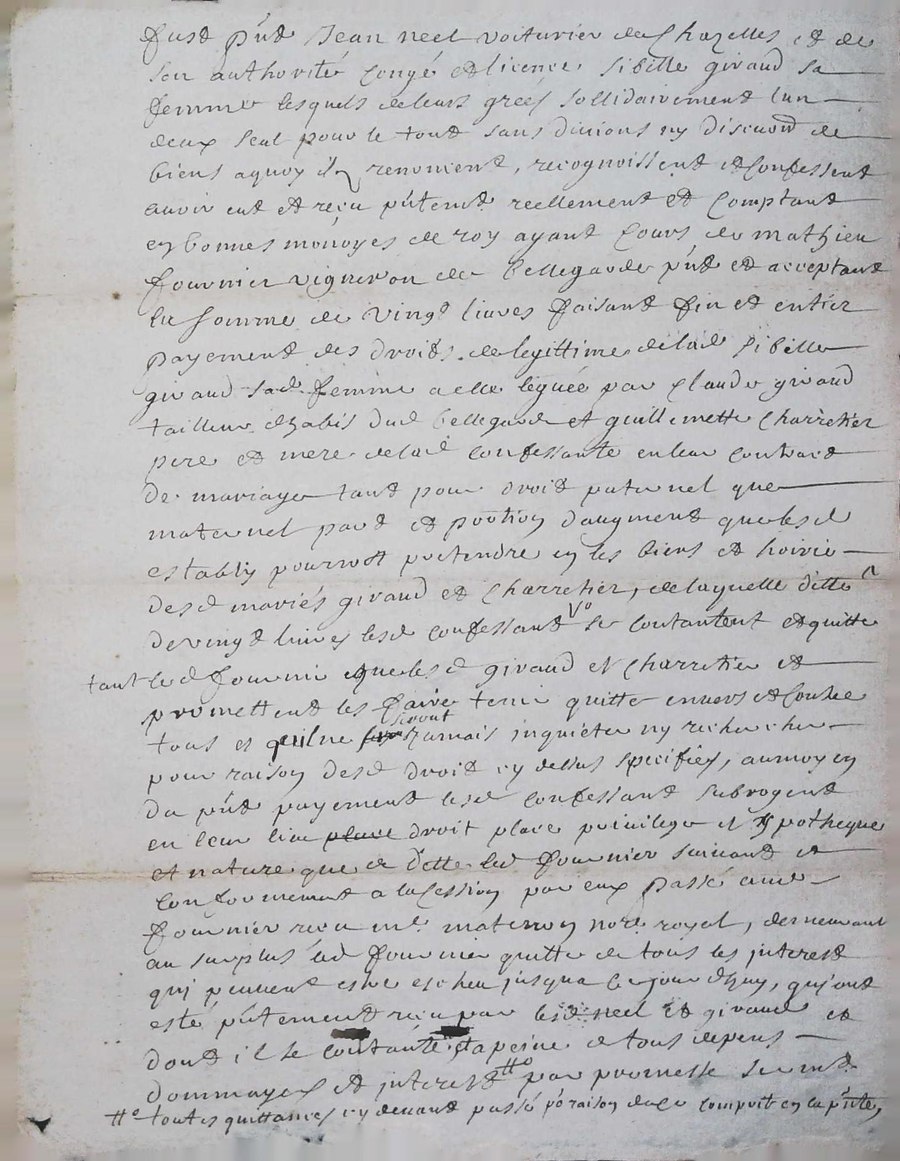 fust p'nt Jean neel voiturier de Chazelles et de
son authorité Congé et licence sibille giraud sa
femme lesquels de leurs greés sollidairement lun
deux seul pour le tout sans divisions ny discuon de
biens aquoy ils renoncent, recognoissent et Confessent
avoir eut et reçu p'ntemt reellement et Comptant
en bonnes monoyes de roy ayant Cours de mathieu
fournier vigneron de bellegarde p'nt et acceptant
la somme de vingt livres faisant fin et entier
payement des droits de legittime de lad sibille
giraud sad femme a elle léguée par Claude giraud
tailleur dhabis dud bellegarde et guillemette Charretier
pere et mere de lad Confessante en leur Contract
de mariage tant pour droit paternel que
maternel part et portion daugment que lesd
establis pourroit pretendre en les biens et hoirie
desd mariés giraud et Charretier, de laquelle ditte
de vingt livres lesd Confessant Vo se Contantent et quitte
tant led fournier que lesd giraud et Charretier et
promettent les faire tenir quitte envers et Contre
tous et quilne seront jamais inquiéte ny rechercher
pour raison desd droit cy dessus specifiés, aumoyen
du p'nt payement lesd Confessant subrogent
en leur lieu place droit place privilege et Hypotheque
et nature que de dette led fournier suivant et
Conformement a la Cession par eux passé aud
fournier reçu me maternon notre royal, demeurant
au surplus led fournier quitte de tous les interest
qui peuvent estre escheu jusqua ce jourdhuy, qui ont
esté p'ntement reçu par lesd neel et giraud et
dont il se Contante et a peine de tous depens
dommages et interest #o par promesse serment
#o toutes quittances cy devant passé po raison de ce Comprit en la p'nte,